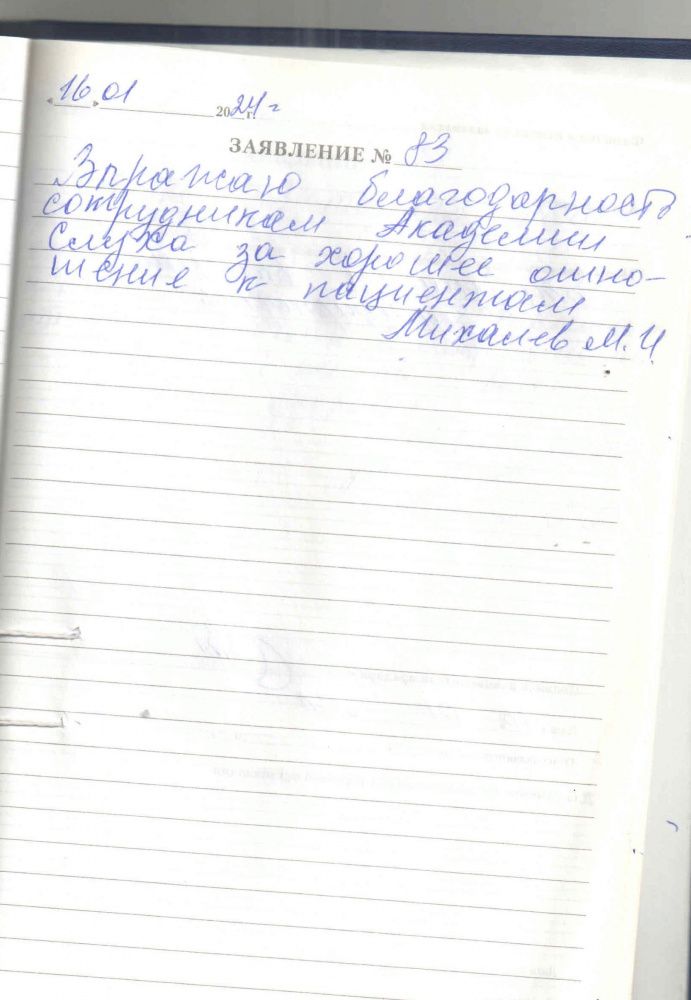 "16" 01 2024 г.
ЗАЯВЛЕНИЕ № 83
Выражаю благодарность
сотрудникам Академии
Слуха за хорошее отно-
шение к пациентам
Михалев М.И.